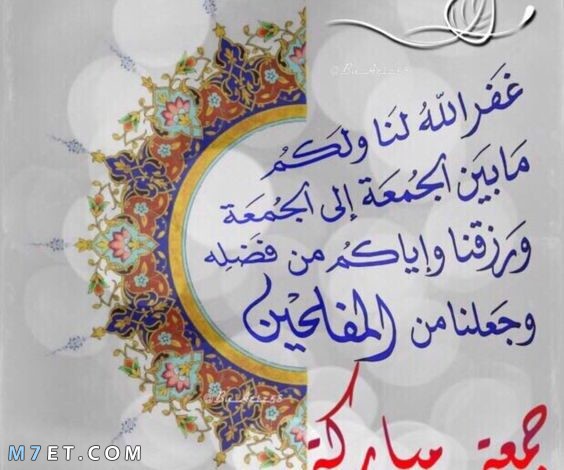 @Bu_Aziz58
غفر الله لنا ولكم
ما بين الجمعة إلى الجمعة
ورزقنا وإياكم من فضله
وجعلنا من المفلحين
@Bu_Aziz58
جمعة مباركة
M7ET.COM